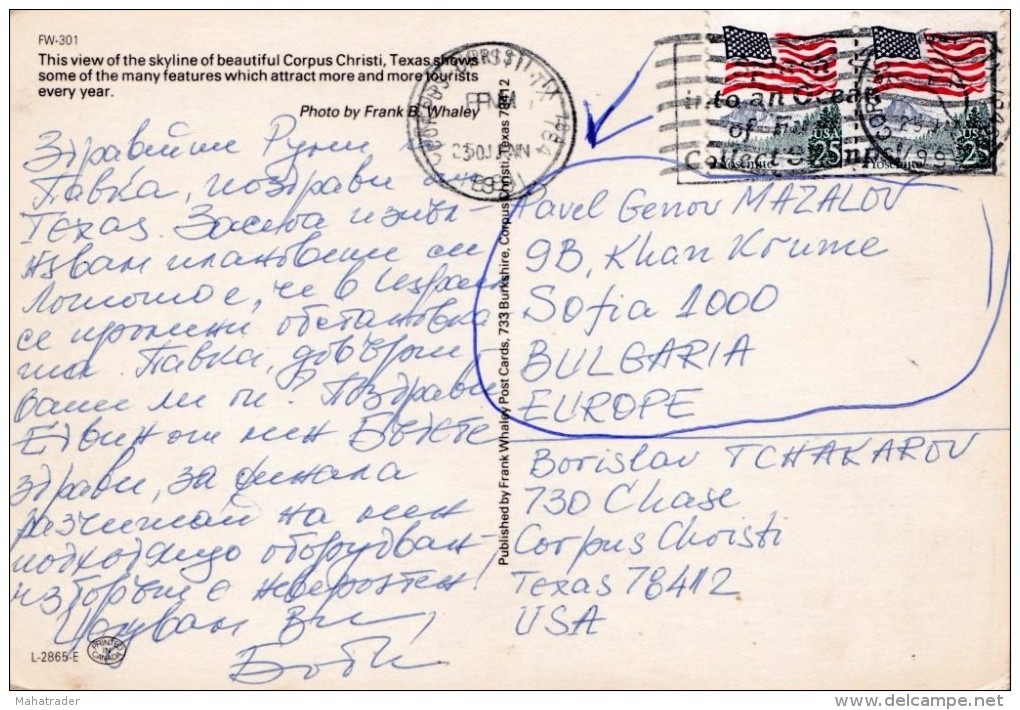 FW-301
This view of the skyline of beautiful Corpus Christi, Texas shows
some of the many features which attract more and more tourists
every year.
Photo by Frank B. Whaley
Здравейте Руми и
Павка, поздрави от
Тексас. Засега
плановете си
Лошото е, че в
се промени обстановка
та. Павка, довърши
ваш ли ги? Поздрави
Едвин от мен Бъдете
здрави, за финала
разчитай на мен
подходящо оборудван
изборът е невероятен!
Целувам Ви,
Боби
Published by Frank Whaley Post Cards, 733 Burkshire, Corpus Christi, Texas 78412
CORPUS CHRISTI TX 784
PM
30 JAN
USA
25
Yosemite
USA
25
Yosemite
Pavel Genov MAZALOV
9B, Khan Krume
Sofia 1000
BULGARIA
EUROPE
Borislav TCHAKAROV
730 Chase
Corpus Christi
Texas 78412
USA
L-2865-E
PRINTED IN CANADA
Mahatrader
www.delcampe.net